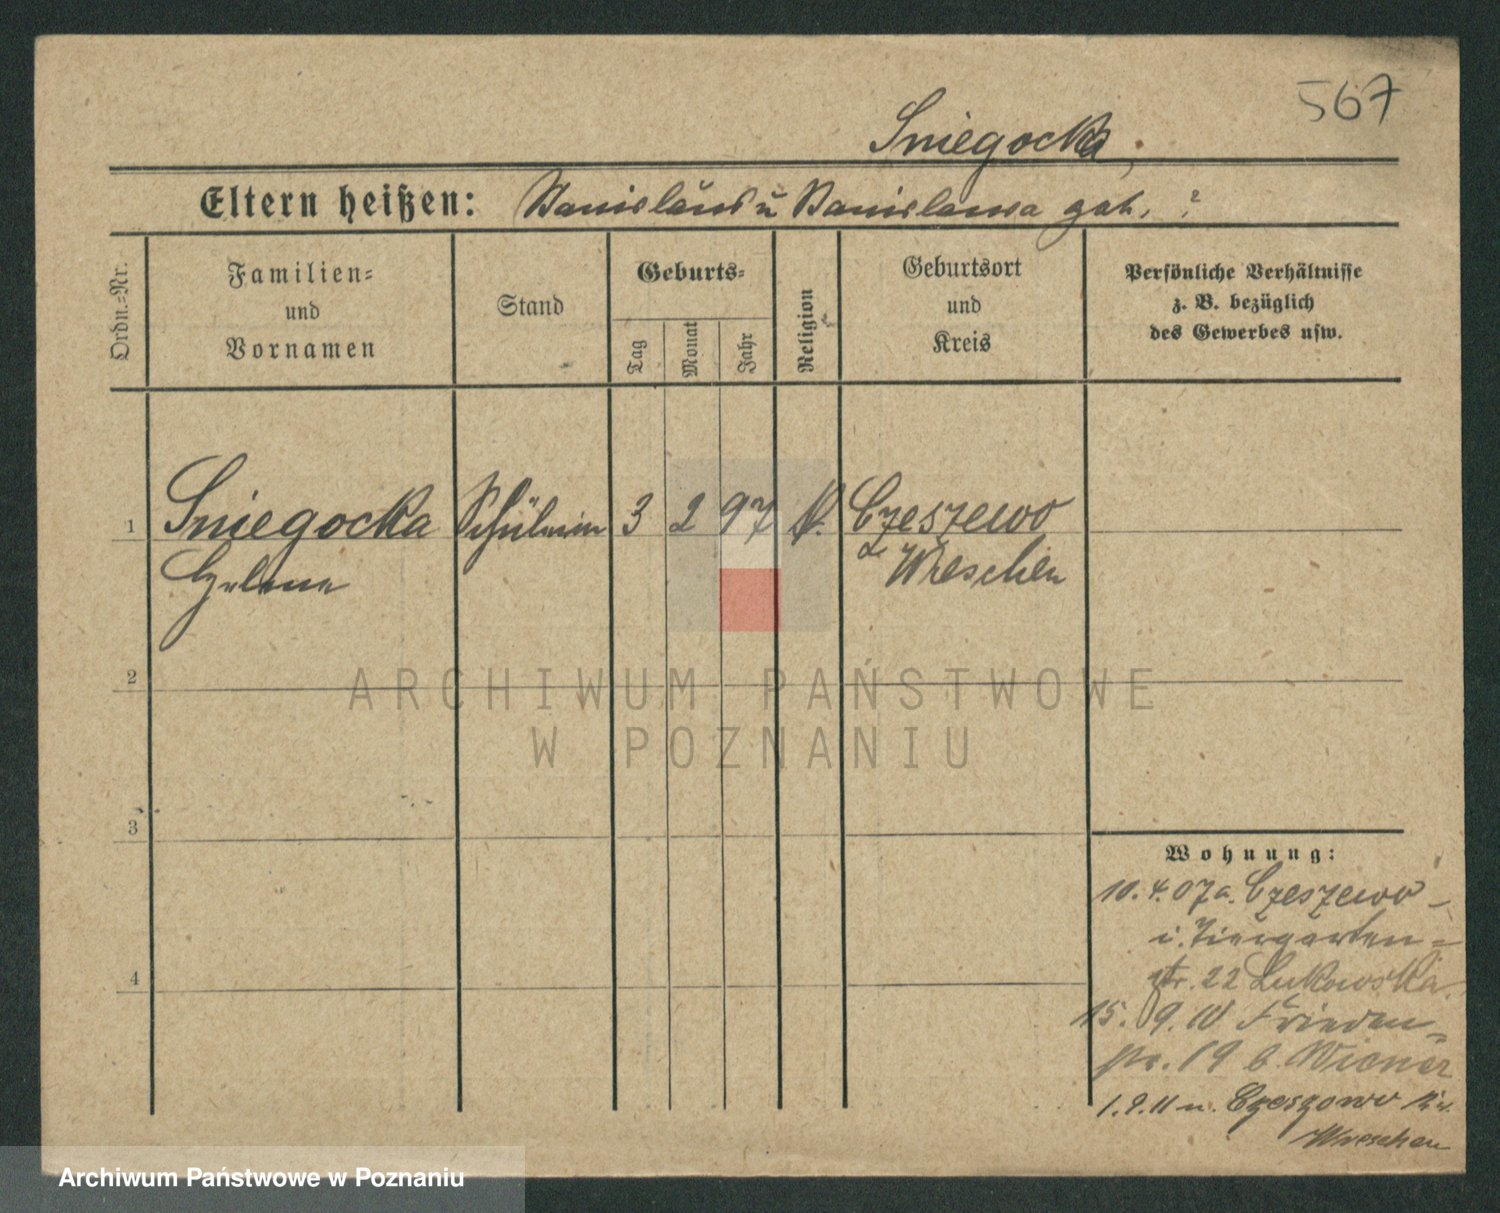 567
Sniegocka
Eltern heißen: Stanislaus u Stanislawa geb. ?
Ordn.-Nr.
Familien-
und
Vornamen
Stand
Geburts-
Tag
Monat
Jahr
Religion
Geburtsort
und
Kreis
Persönliche Verhältnisse
z. B. bezüglich
des Gewerbes usw.
1 Sniegocka Schülerin 3 2 97 K. Czeszewo
Helene Wreschen
2
3
4
Wohnung:
10. 4. 07 a. Czeszewo -
i. Tiergarten=
str. 22 Lukowska.
15. 9. 10 Frieden=
str. 19 b. Wiener
1. 9. 11 n. Czeszewo
Wreschen
ARCHIWUM PAŃSTWOWE
W POZNANIU
Archiwum Państwowe w Poznaniu